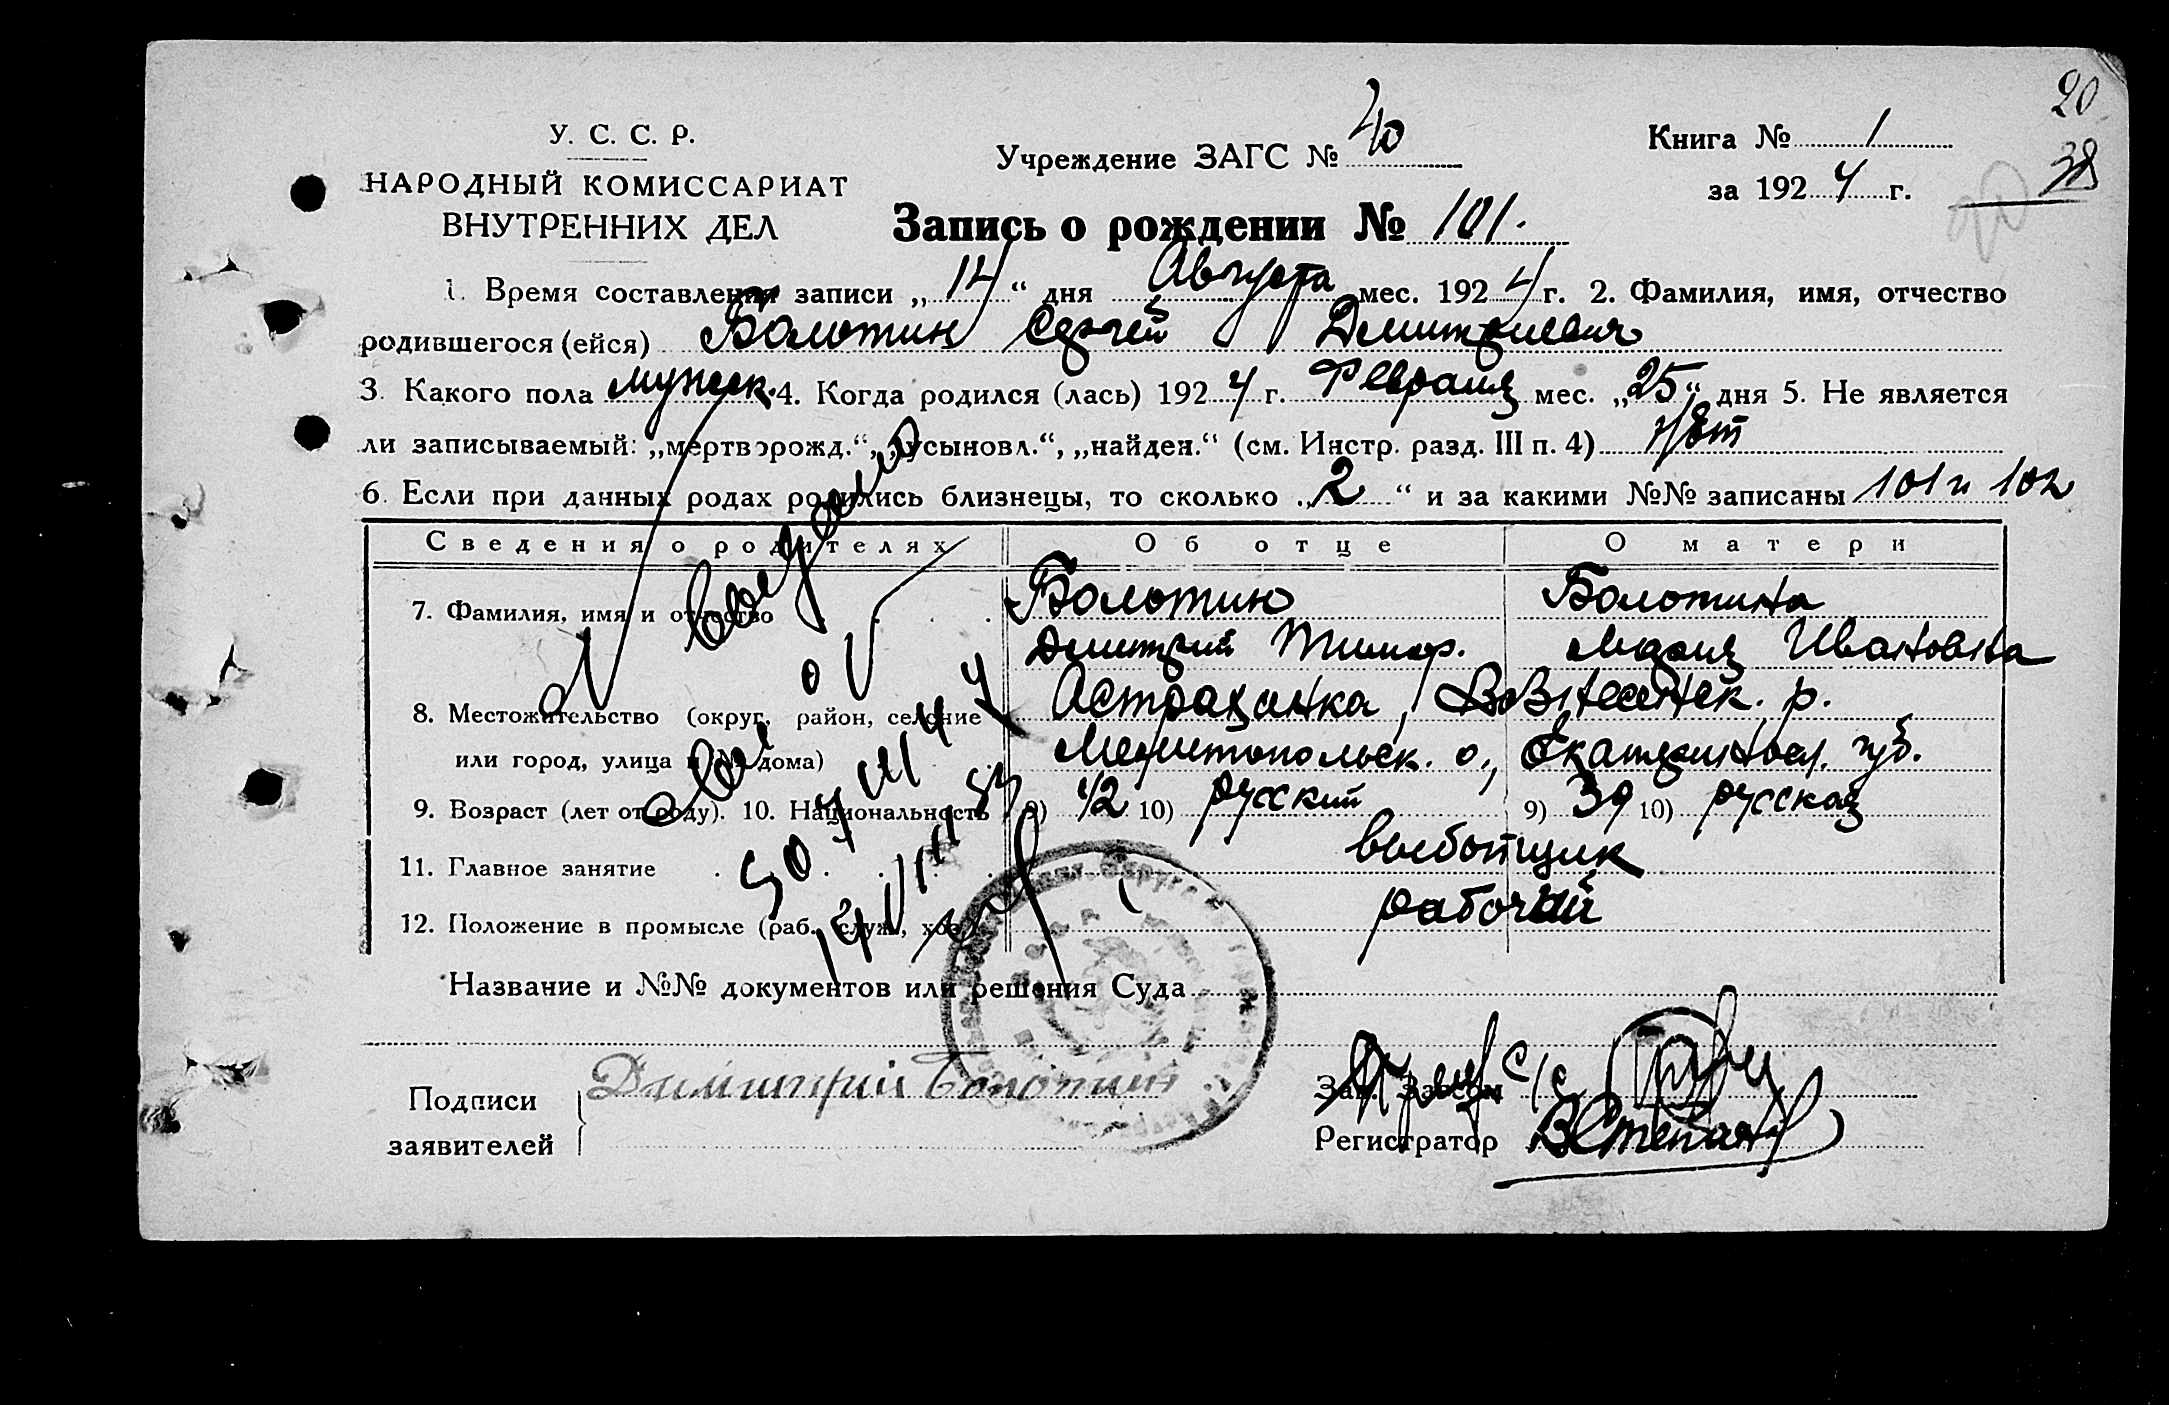 20
38
У. С. С. Р.
НАРОДНЫЙ КОМИССАРИАТ
ВНУТРЕННИХ ДЕЛ
Учреждение ЗАГС № 40
Книга № 1
за 1924 г.
Запись о рождении № 101.
1. Время составления записи „14“ дня Августа мес. 1924 г. 2. Фамилия, имя, отчество
родившегося (ейся) Болотин Сергей Дмитриевич
3. Какого пола мужск. 4. Когда родился (лась) 1924 г. Февраля мес. „25“ дня 5. Не является
ли записываемый: „мертворожд.“, „усыновл.“, „найден.“ (см. Инстр. разд. III п. 4) нет
6. Если при данных родах родились близнецы, то сколько „2“ и за какими №№ записаны 101 и 102
Сведения о родителях Об отце О матери
7. Фамилия, имя и отчество Болотин Болотина
Дмитрий Тимоф. Мария Ивановна
8. Местожительство (округ, район, селение Астраханка, Вознесенск. р.
или город, улица и № дома) Мелитопольск. о., Екатериносл. губ.
9. Возраст (лет от роду). 10. Национальность 9) 42 10) русский 9) 39 10) русская
11. Главное занятие выбойщик
12. Положение в промысле (раб., служ., хоз.) рабочий
Название и №№ документов или решения Суда
Подписи
заявителей
Димитрий Болотин
Зав. Загсом
Регистратор ВСтепан